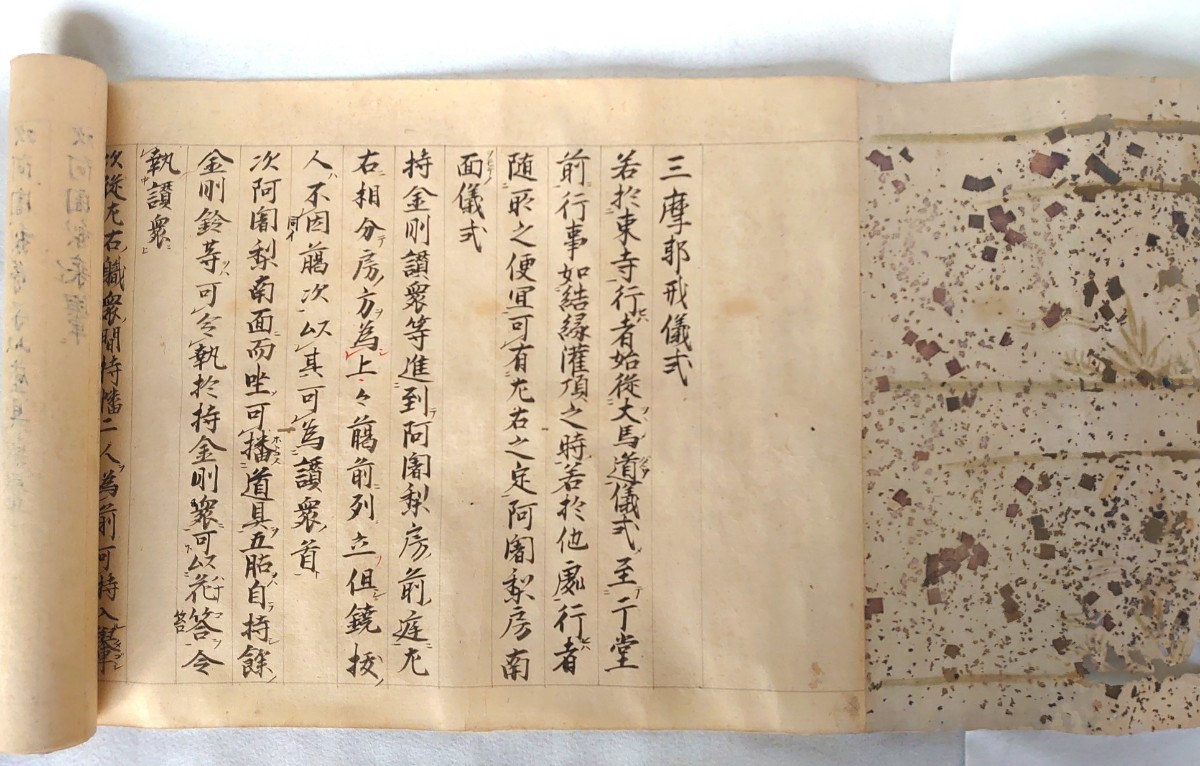 三摩耶戒儀式
若於東寺行者始從大馬道儀式至于堂
前行事如結縁灌頂之時若於他處行者
随所之便宜可有尢右之定阿闍梨房南
面儀式
持金剛讃衆等進到阿闍梨房前庭尢
右相分房方為上々﨟前列立但鐃扱
人不因﨟次以其可為讃衆首
次阿闍梨南面而坐可播道具五股自持餘
金剛鈴等可令執於持金剛衆可以花筥令
執讃衆
次從尢右職衆間持幡二人為前可持入